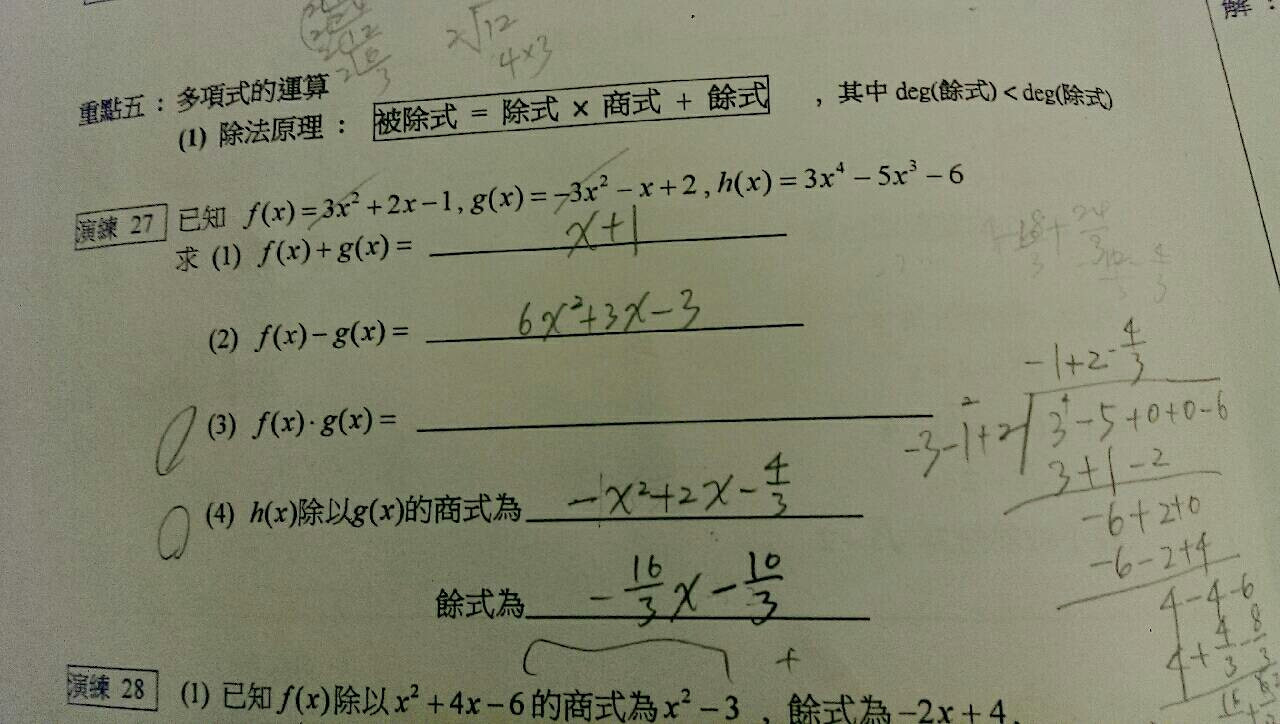 解：
2√12
4×3
重點五：多項式的運算
(1) 除法原理： 被除式 = 除式 × 商式 + 餘式 ，其中 deg(餘式) < deg(除式)
演練 27 已知 f(x)=3x²+2x−1, g(x)=−3x²−x+2, h(x)=3x⁴−5x³−6
求 (1) f(x)+g(x)= x+1
(2) f(x)−g(x)= 6x²+3x−3
(3) f(x)·g(x)=
(4) h(x)除以g(x)的商式為 −x²+2x−4/3
餘式為 −16/3x−10/3
−1+2−4/3
−3−1+2 3−5+0+0−6
3+1−2
−6+2+0
−6−2+4
4−4−6
4+4/3−8/3
演練 28 (1) 已知f(x)除以x²+4x−6的商式為x²−3，餘式為−2x+4,